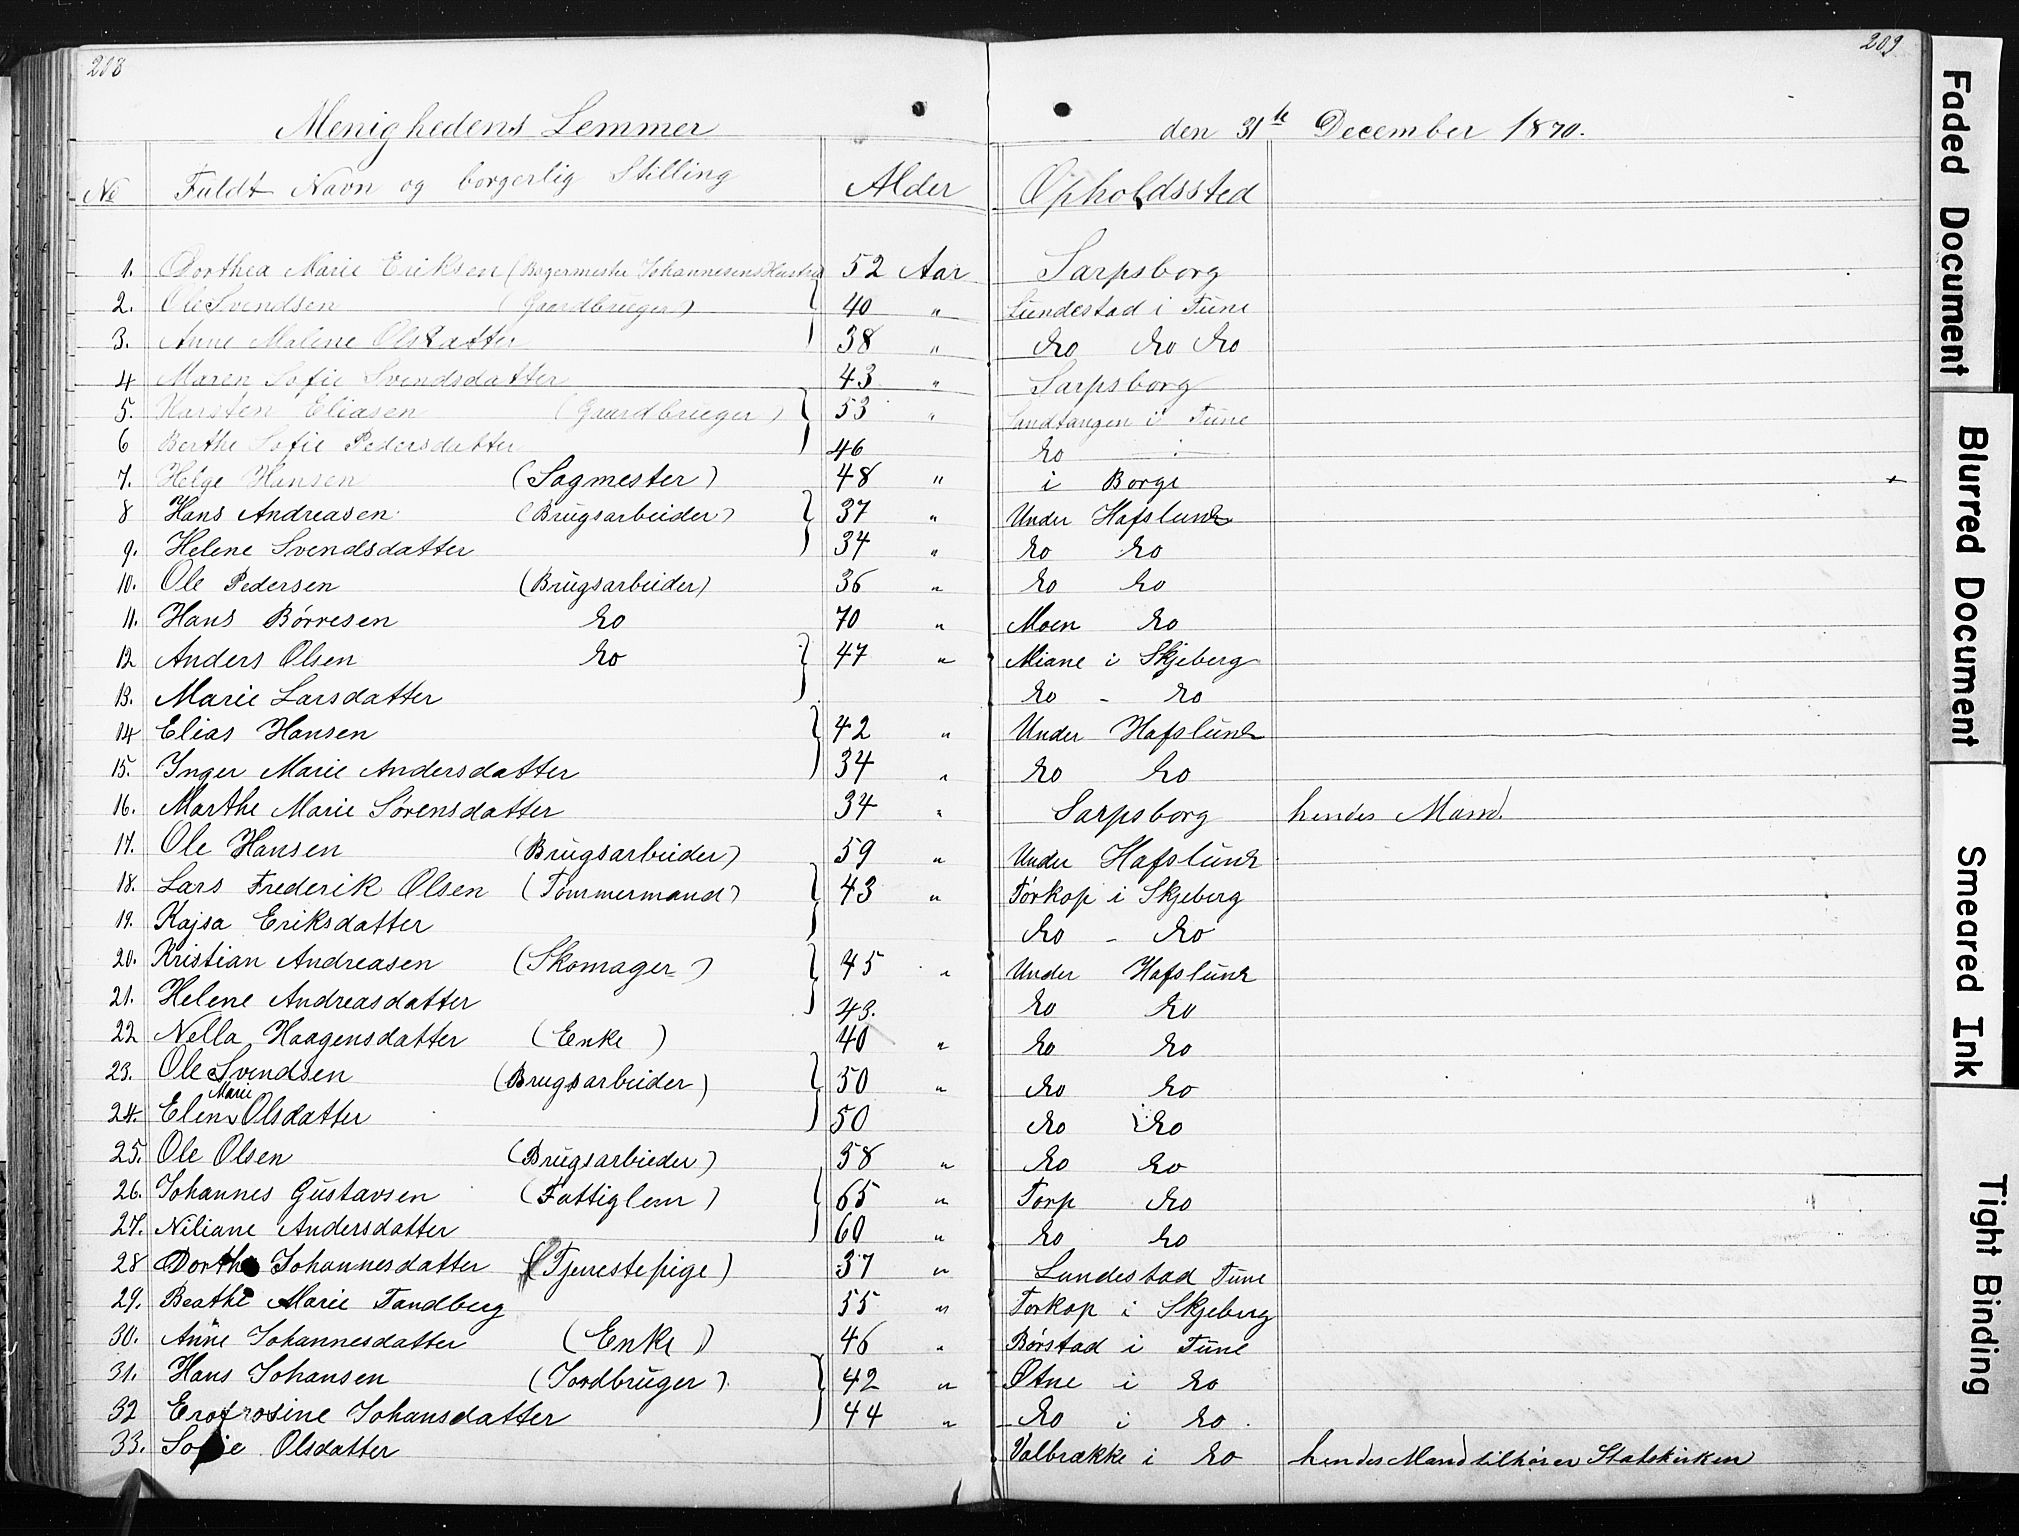 208
209
Menighedens Lemmer den 31te December 1870.
No Fuldt Navn og borgerlig Stilling Alder Opholdssted
1. Dorthea Marie Eriksen (Bagermester Johannesens Hustru 52 Aar Sarpsborg
2. Ole Svendsen (Gaardbruger) 40 " Lundestad i Tune
3. Anne Malene Olsdatter 38 " do do do
4 Maren Sofie Svendsdatter 43 " Sarpsborg
5. Karsten Eliasen (Gaardbruger) 53 " Sandtangen i Tune
6 Berthe Sofie Pedersdatter 46 do
7. Helge Hansen (Sagmester) 48 " i Borge
8 Hans Andreasen (Brugsarbeider) 37 " Under Hafslund
9. Helene Svendsdatter 34 " do do
10. Ole Pedersen (Brugsarbeider) 36 " do do
11. Hans Börresen do 70 " Moen do
12 Anders Olsen do 47 " Miane i Skjeberg
13. Marie Larsdatter do - do
14 Elias Hansen 42 " Under Hafslund
15. Inger Marie Andersdatter 34 " do do
16. Marthe Marie Sörensdatter 34 " Sarpsborg hendes Mand
17. Ole Hansen (Brugsarbeider) 59 " Under Hafslund
18. Lars Frederik Olsen (Tømmermand) 43 " Torkop i Skjeberg
19. Kajsa Eriksdatter do - do
20. Kristian Andreasen (Skomager) 45 " Under Hafslund
21. Helene Andreasdatter 43. do do
22 Nella Haagensdatter (Enke) 40 " do do
23. Ole Svendsen (Brugsarbeider) 50 " do do
24. Elen Marie Olsdatter 50 do do
25. Ole Olsen (Brugsarbieder) 58 " do do
26. Johannes Gustavsen (Fattiglem) 65 " Torp do
27. Niliane Andersdatter 60 " do do
28 Dorthe Johannesdatter (Tjenestepige) 37 " Lundestad Tune
29. Beathe Marie Tandberg 55 " Torkop i Skjeberg
30. Anne Johannesdatter (Enke) 46 " Børstad i Tune
31. Hans Johansen (Jordbruger) 42 " Otne i do
32 Erofrosine Johansdatter 44 " do i do.
33. Sofie Olsdatter Valbrække i do hendes Mand tilhører Statskirken
Faded Document
Blurred Document
Smeared Ink
Tight Binding